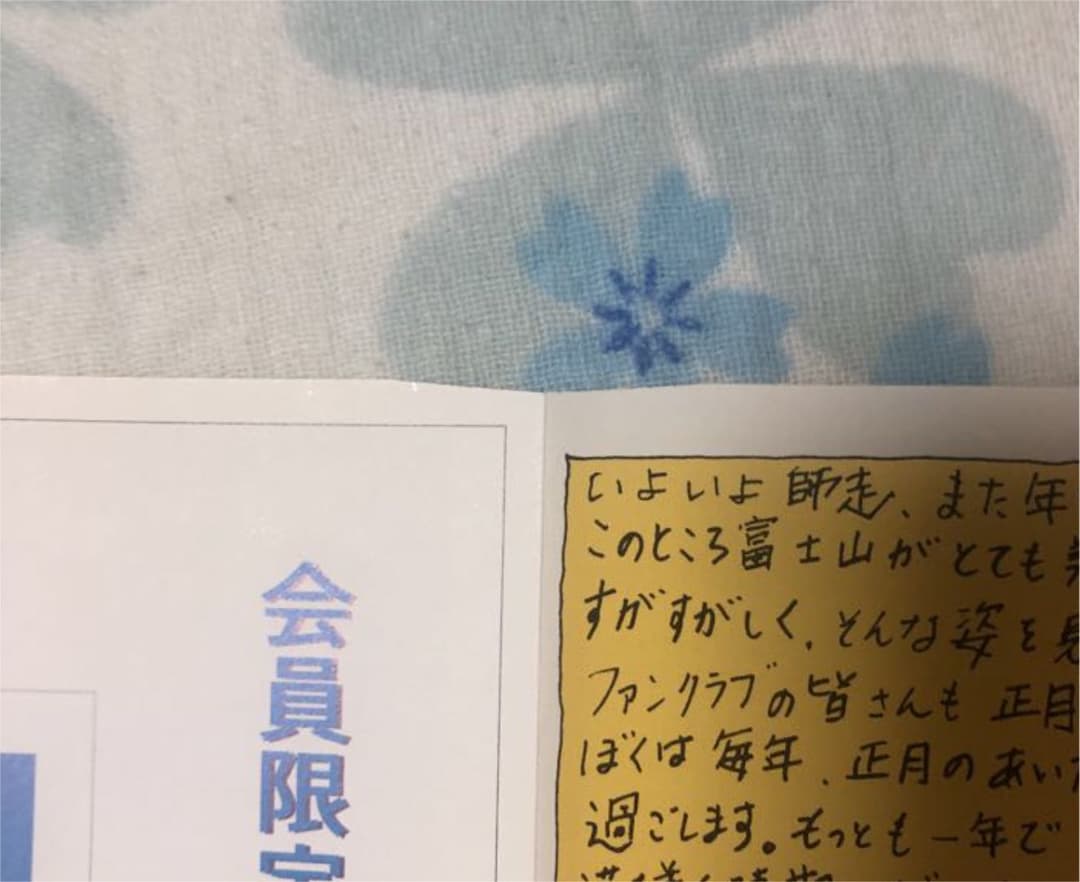 会員限定
いよいよ師走、また年
このところ富士山がとても美
すがすがしく、そんな姿を見
ファンクラブの皆さんも正月
ぼくは毎年、正月のあいだ
過ごします。もっとも一年で